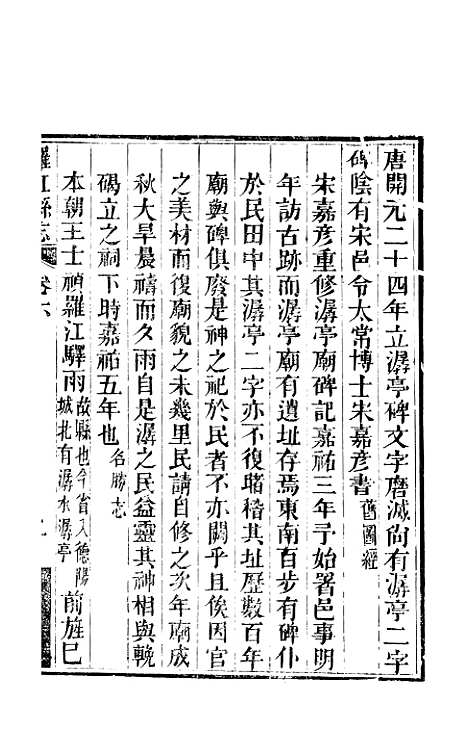 唐開元二十四年立潺亭碑文字磨滅尚有潺亭二字
碑陰有宋邑令太常博士宋嘉彦書舊圖經
宋嘉彦重修潺亭廟碑記嘉祐三年予始署邑事明
年訪古跡而潺亭廟有遺址存焉東南百步有碑仆
於民田中其潺亭二字亦不復睹稽其址歷數百年
廟與碑俱廢是神之祀於民者不亦闕乎且俟因官
之美材而復廟貌之未幾里民請自修之次年廟成
秋大旱晨禱而久雨自是潺之民益靈其神相與輓
碣立之祠下時嘉祐五年也名勝志
本朝王士禎羅江驛雨故縣也今省入德陽城北有潺水潺亭前旌巳
羅江縣志 卷六